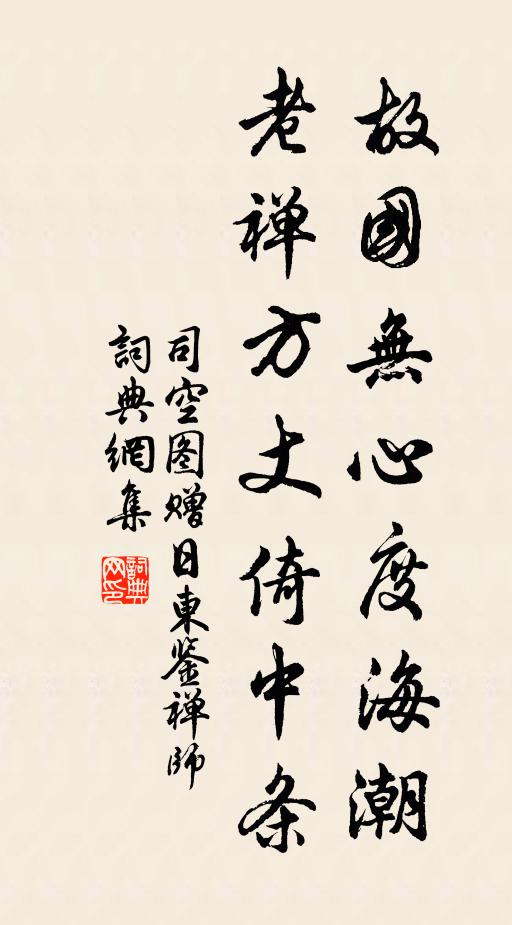 故國無心度海潮
老禅方丈倚中条
司空图赠日東鉴禅師
詞典網集
詞典网印